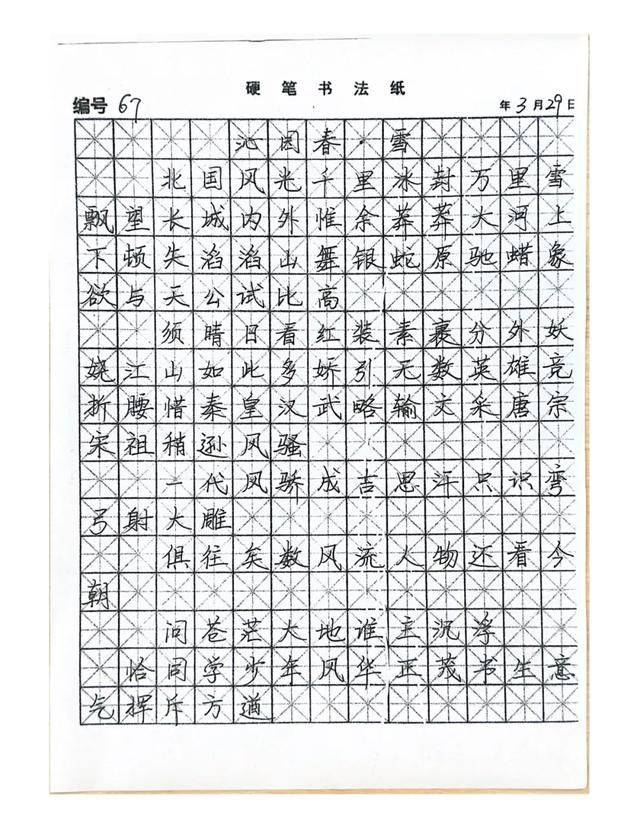 硬笔书法纸
编号 67 年 3 月 29 日
沁园春·雪
北国风光千里冰封万里雪
飘望长城内外惟余莽莽大河上
下顿失滔滔山舞银蛇原驰蜡象
欲与天公试比高
须晴日看红装素裹分外妖
娆江山如此多娇引无数英雄竞
折腰惜秦皇汉武略输文采唐宗
宋祖稍逊风骚
一代风骄成吉思汗只识弯
弓射大雕
俱往矣数风流人物还看今
朝
问苍茫大地谁主沉浮
恰同学少年风华正茂书生意
气挥斥方遒